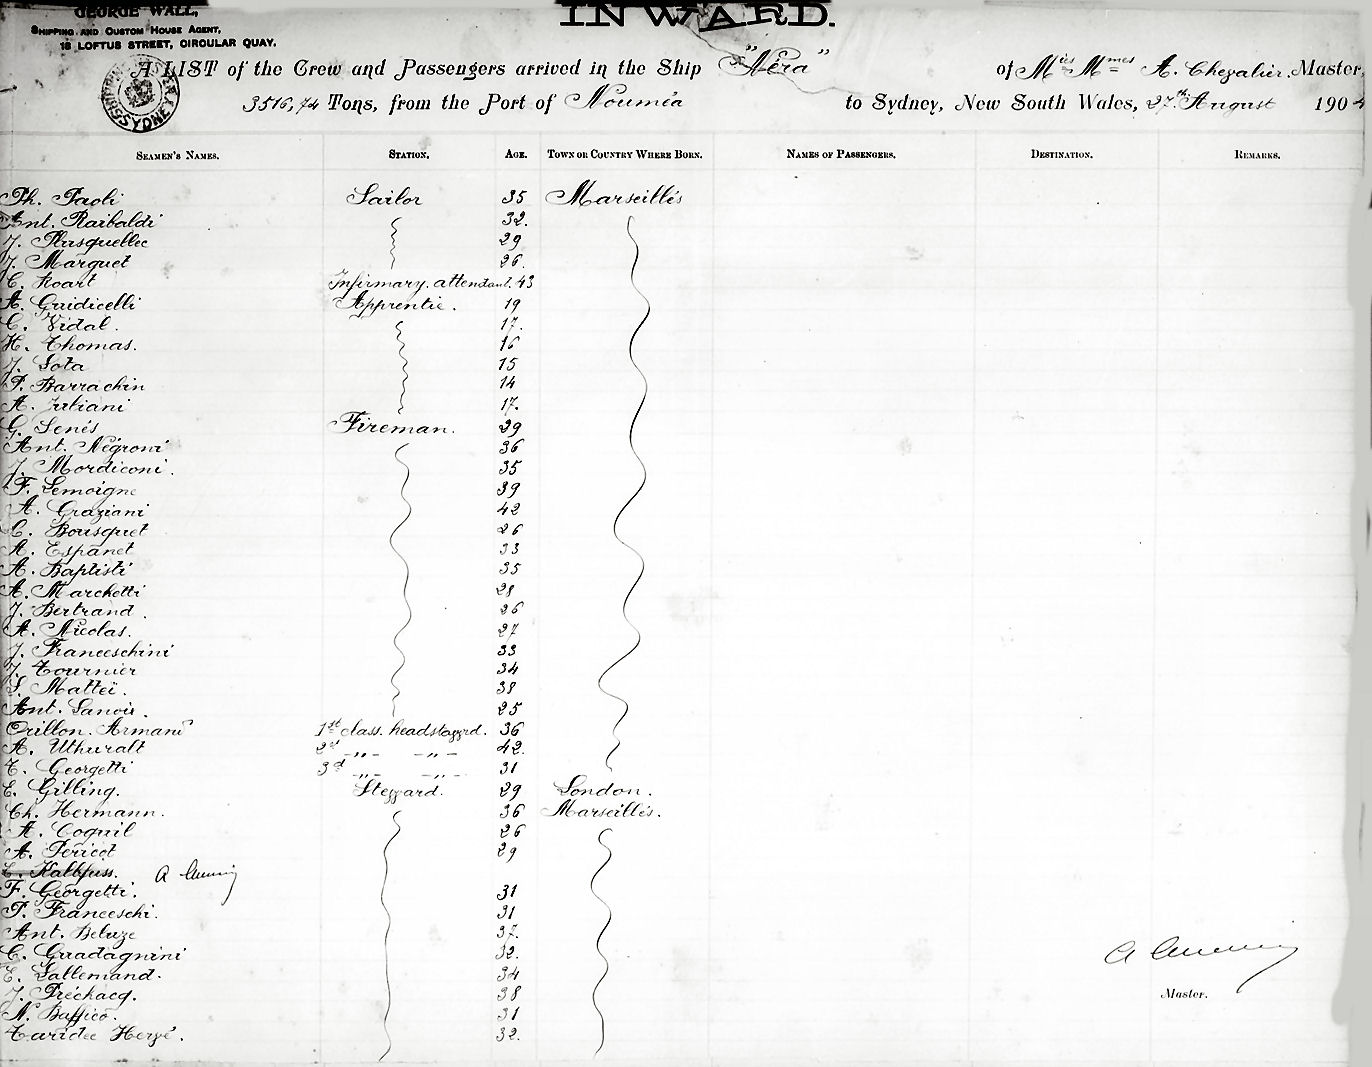 GEORGE WALL,
SHIPPING AND CUSTOM HOUSE AGENT,
18 LOFTUS STREET, CIRCULAR QUAY.
INWARD.
A LIST of the Crew and Passengers arrived in the Ship "Néra" of Mies Mmes A. Chevalier. Master,
3516,74 Tons, from the Port of Nouméa to Sydney, New South Wales, 27th August 1904
SEAMEN'S NAMES. STATION. AGE. TOWN OR COUNTRY WHERE BORN. NAMES OF PASSENGERS. DESTINATION. REMARKS.
Ph. Paoli Sailor 35 Marseillés
Ant. Raibaldi 32.
J. Plusquellec 29
J. Marquet 26.
C. Hoart Infirmary. attendant. 43
A. Guidicelli Apprentic. 19
C. Vidal. 17.
H. Thomas. 16
J. Sota 15
F. Barrachin 14
A. Iuliani 17.
G. Senés Fireman. 29
Ant. Négroni 36
J. Mordiconi. 35
F. Lemoigne 39
A. Graziani 42
C. Bousquet 26
A. Espanet 33
A. Baptisti 35
A. Marchetti 28
J. Bertrand. 26
A. Nicolas. 27
J. Franceschini 33
J. Tournier 34
S. Mattei. 38
Ant. Lanoir. 25
Orillon. Armand 1st class. headsteward. 36
A. Uthuralt 2d -„- -„- 42.
T. Georgetti 3d -„- -„- 31
E. Gilling. Steward. 29 London.
Ch. Hermann. 36 Marseillés.
A. Coquil 26
A. Pericot 29
Kalbfuss.
F. Georgetti. 31
P. Franceschi. 31
Ant. Beluze 37.
C. Guadagnini 32.
E. Lallemand. 34
J. Préchacq. 38
N. Baffico. 31
Taridec Hervé. 32.
Master.